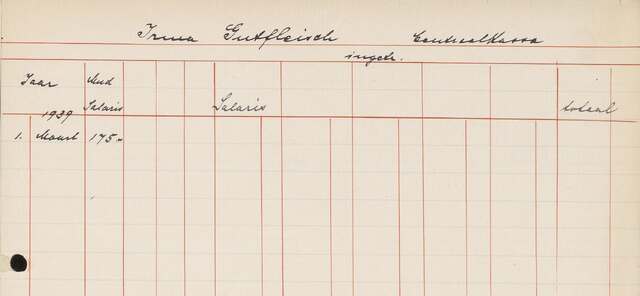 Irma Gutfleisch Centraalkassa
ingetr.
Jaar Mnd
Salaris Salaris totaal
1939
1. Maart 175.-